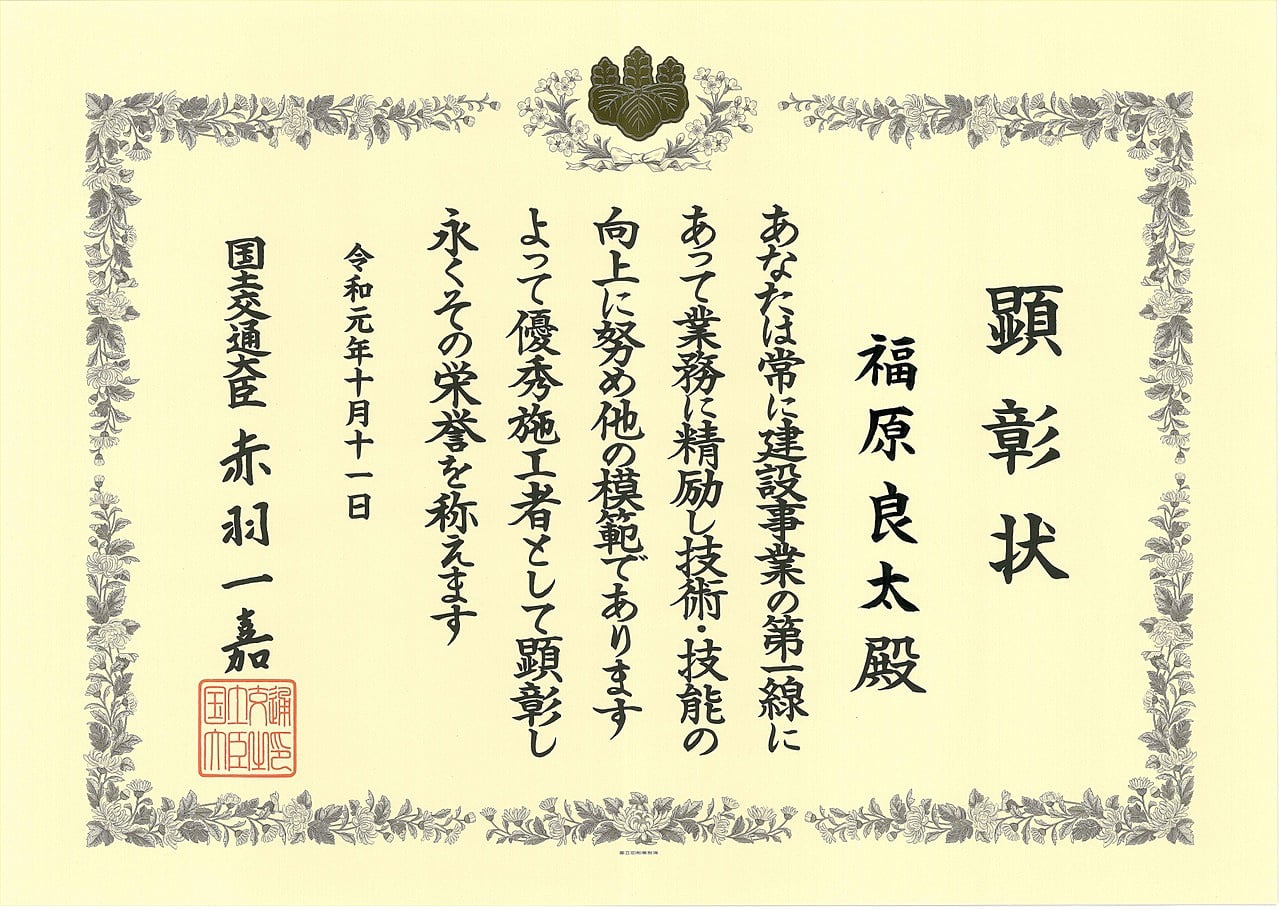 顕彰状
福原良太殿
あなたは常に建設事業の第一線に
あって業務に精励し技術・技能の
向上に努め他の模範であります
よって優秀施工者として顕彰し
永くその栄誉を称えます
令和元年十月十一日
国土交通大臣 赤羽一嘉
国土交通
大臣之印